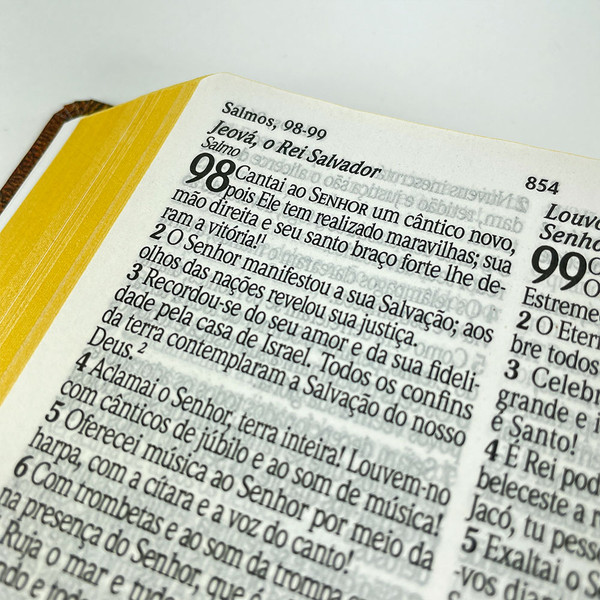 Salmos, 98-99
854
Jeová, o Rei Salvador
Salmo
98 Cantai ao SENHOR um cântico novo,
pois Ele tem realizado maravilhas; sua
mão direita e seu santo braço forte lhe de-
ram a vitória!¹
2 O Senhor manifestou a sua Salvação; aos
olhos das nações revelou sua justiça.
3 Recordou-se do seu amor e da sua fideli-
dade pela casa de Israel. Todos os confins
da terra contemplaram a Salvação do nosso
Deus.²
4 Aclamai o Senhor, terra inteira! Louvem-no
com cânticos de júbilo e ao som de música!
5 Oferecei música ao Senhor por meio da
harpa, com a cítara e a voz do canto!
6 Com trombetas e ao som da trompa
na presença do Senhor, que é
Ruja o mar e tudo
Louvo
Senho
99
Estreme
2 O Eter
bre todos
3 Celebr
grande e
é Santo!
4 É Rei pod
beleceste a
Jacó, tu pesse
5 Exaltai o S
-vos dian